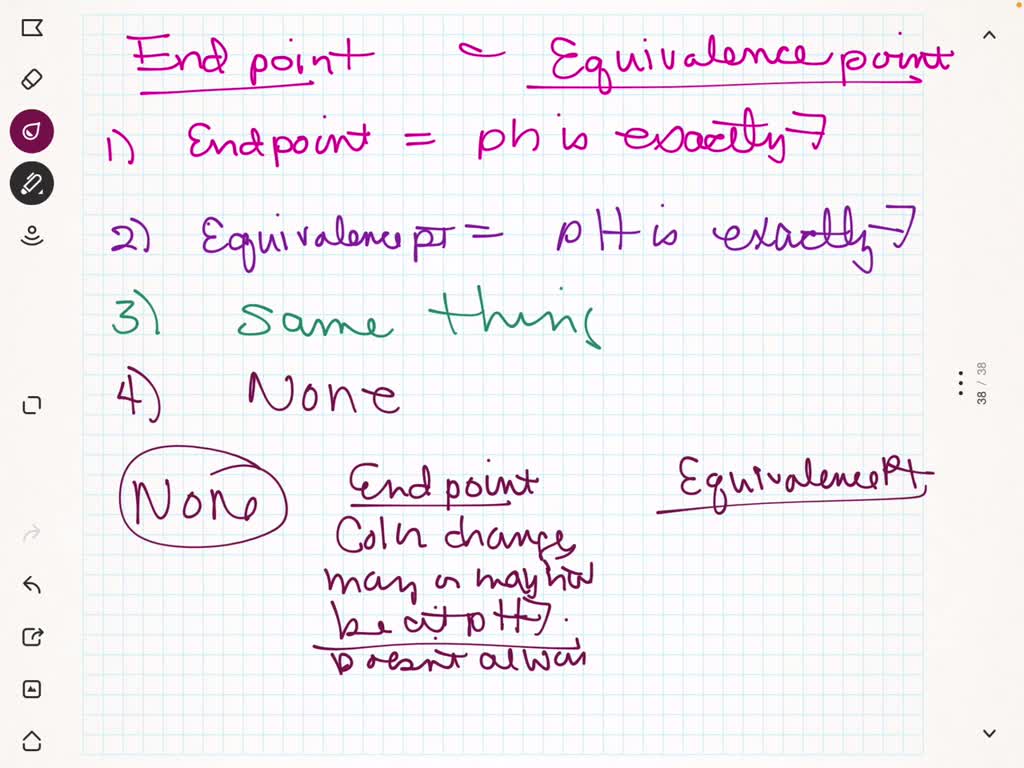 End point ~ Equivalence point
1) Endpoint = ph is exactly 7
2) Equivalence pt = pH is exactly 7
3) Same thing
4) None
None
End point
Colr change
may or may not
be at pH 7.
Doesn't alwa
Equivalence Pt
38 / 38